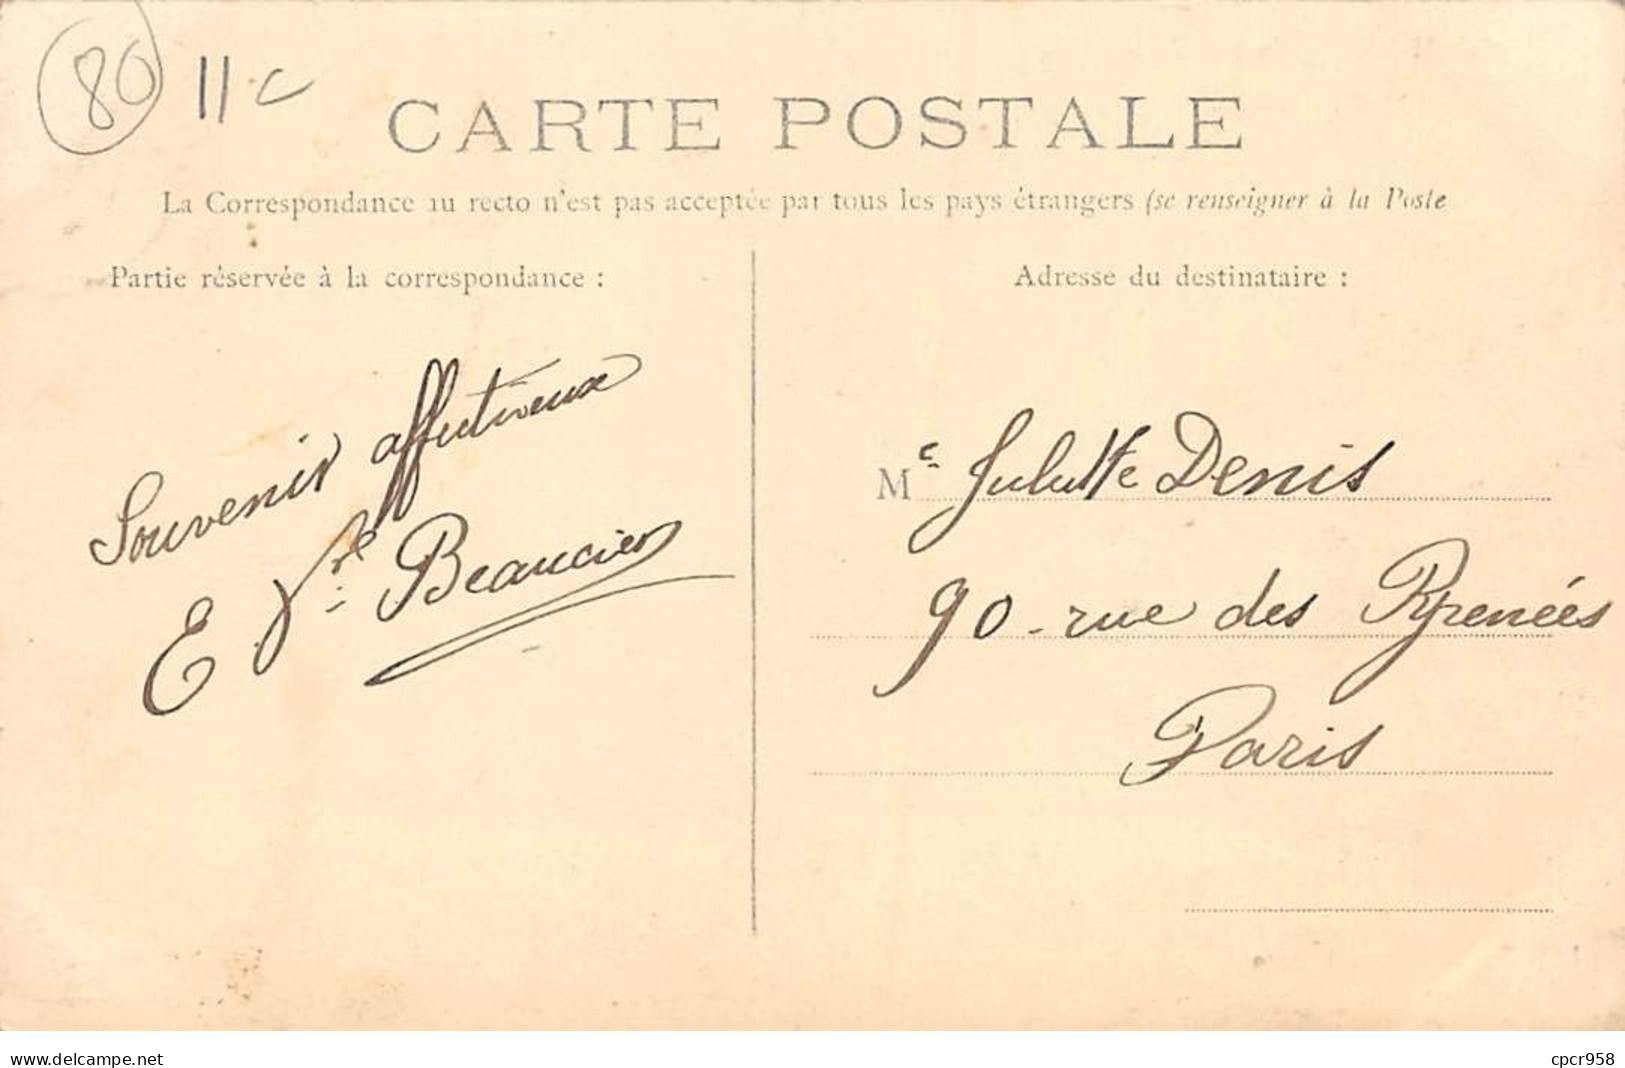 80 11 c
CARTE POSTALE
La Correspondance au recto n'est pas acceptée par tous les pays étrangers (se renseigner à la Poste
Partie réservée à la correspondance :
Adresse du destinataire :
Souvenir affectueux
E Beaucier
Me Juliette Denis
90 - rue des Pyrenées
Paris
www.delcampe.net
cpcr958